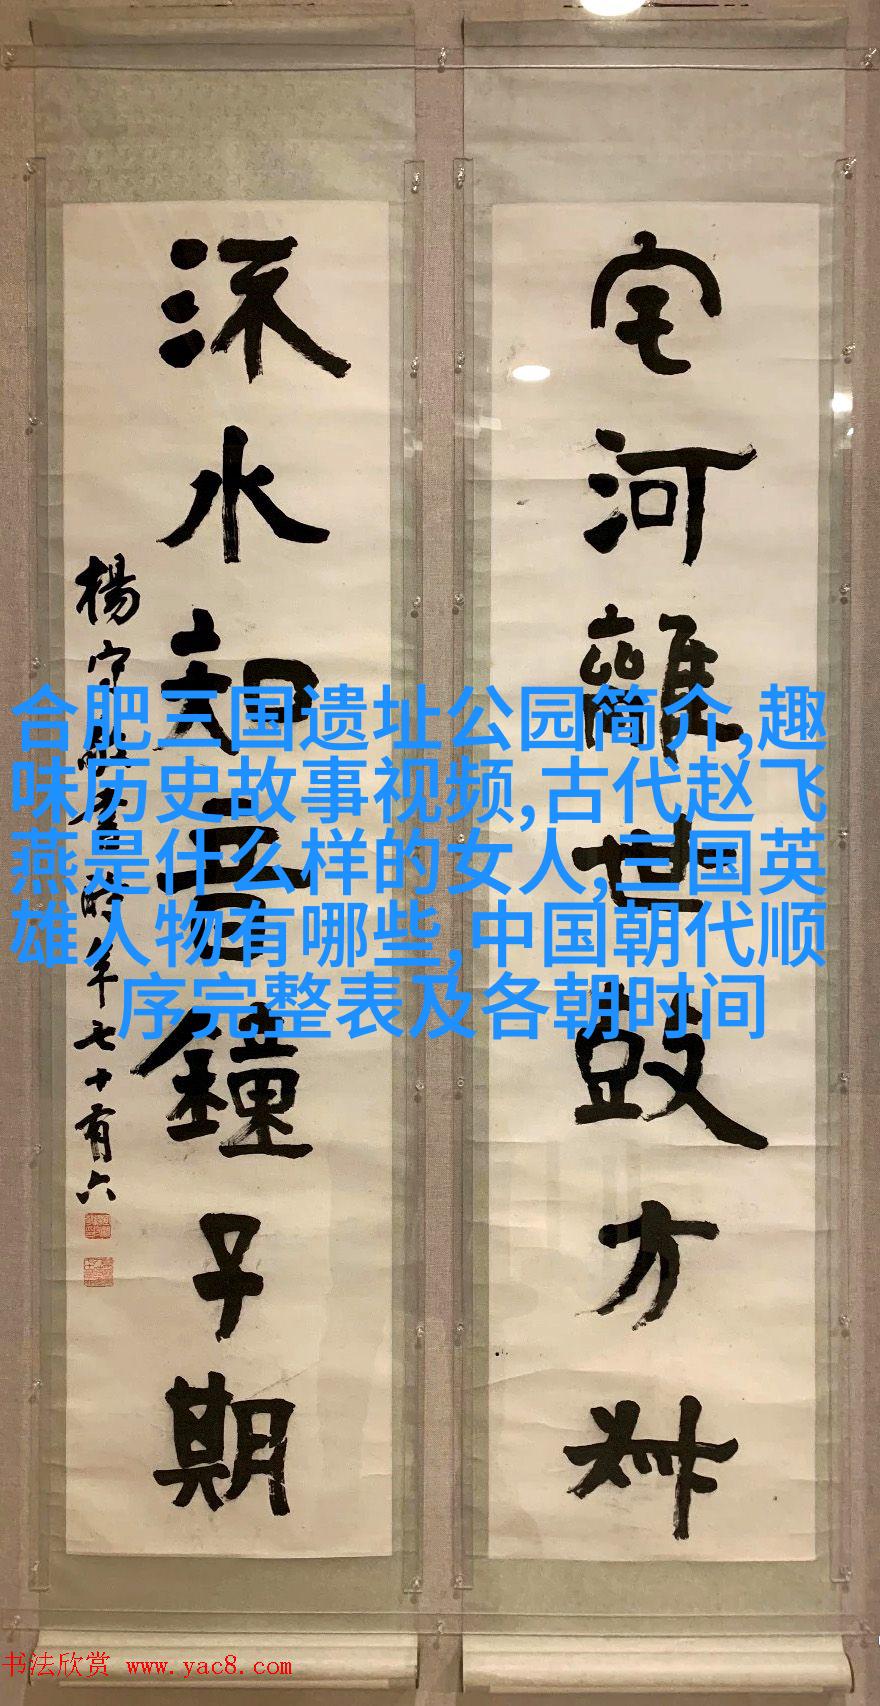 宅河離世鼓方叔
流水知音鐘子期
楊守敬書時年七十有六
合肥三国遗址公园简介,趣
味历史故事视频,古代赵飞
燕是什么样的女人,三国英
雄人物有哪些,中国朝代顺
序完整表及各朝时间
书法欣赏 www.yac8.com